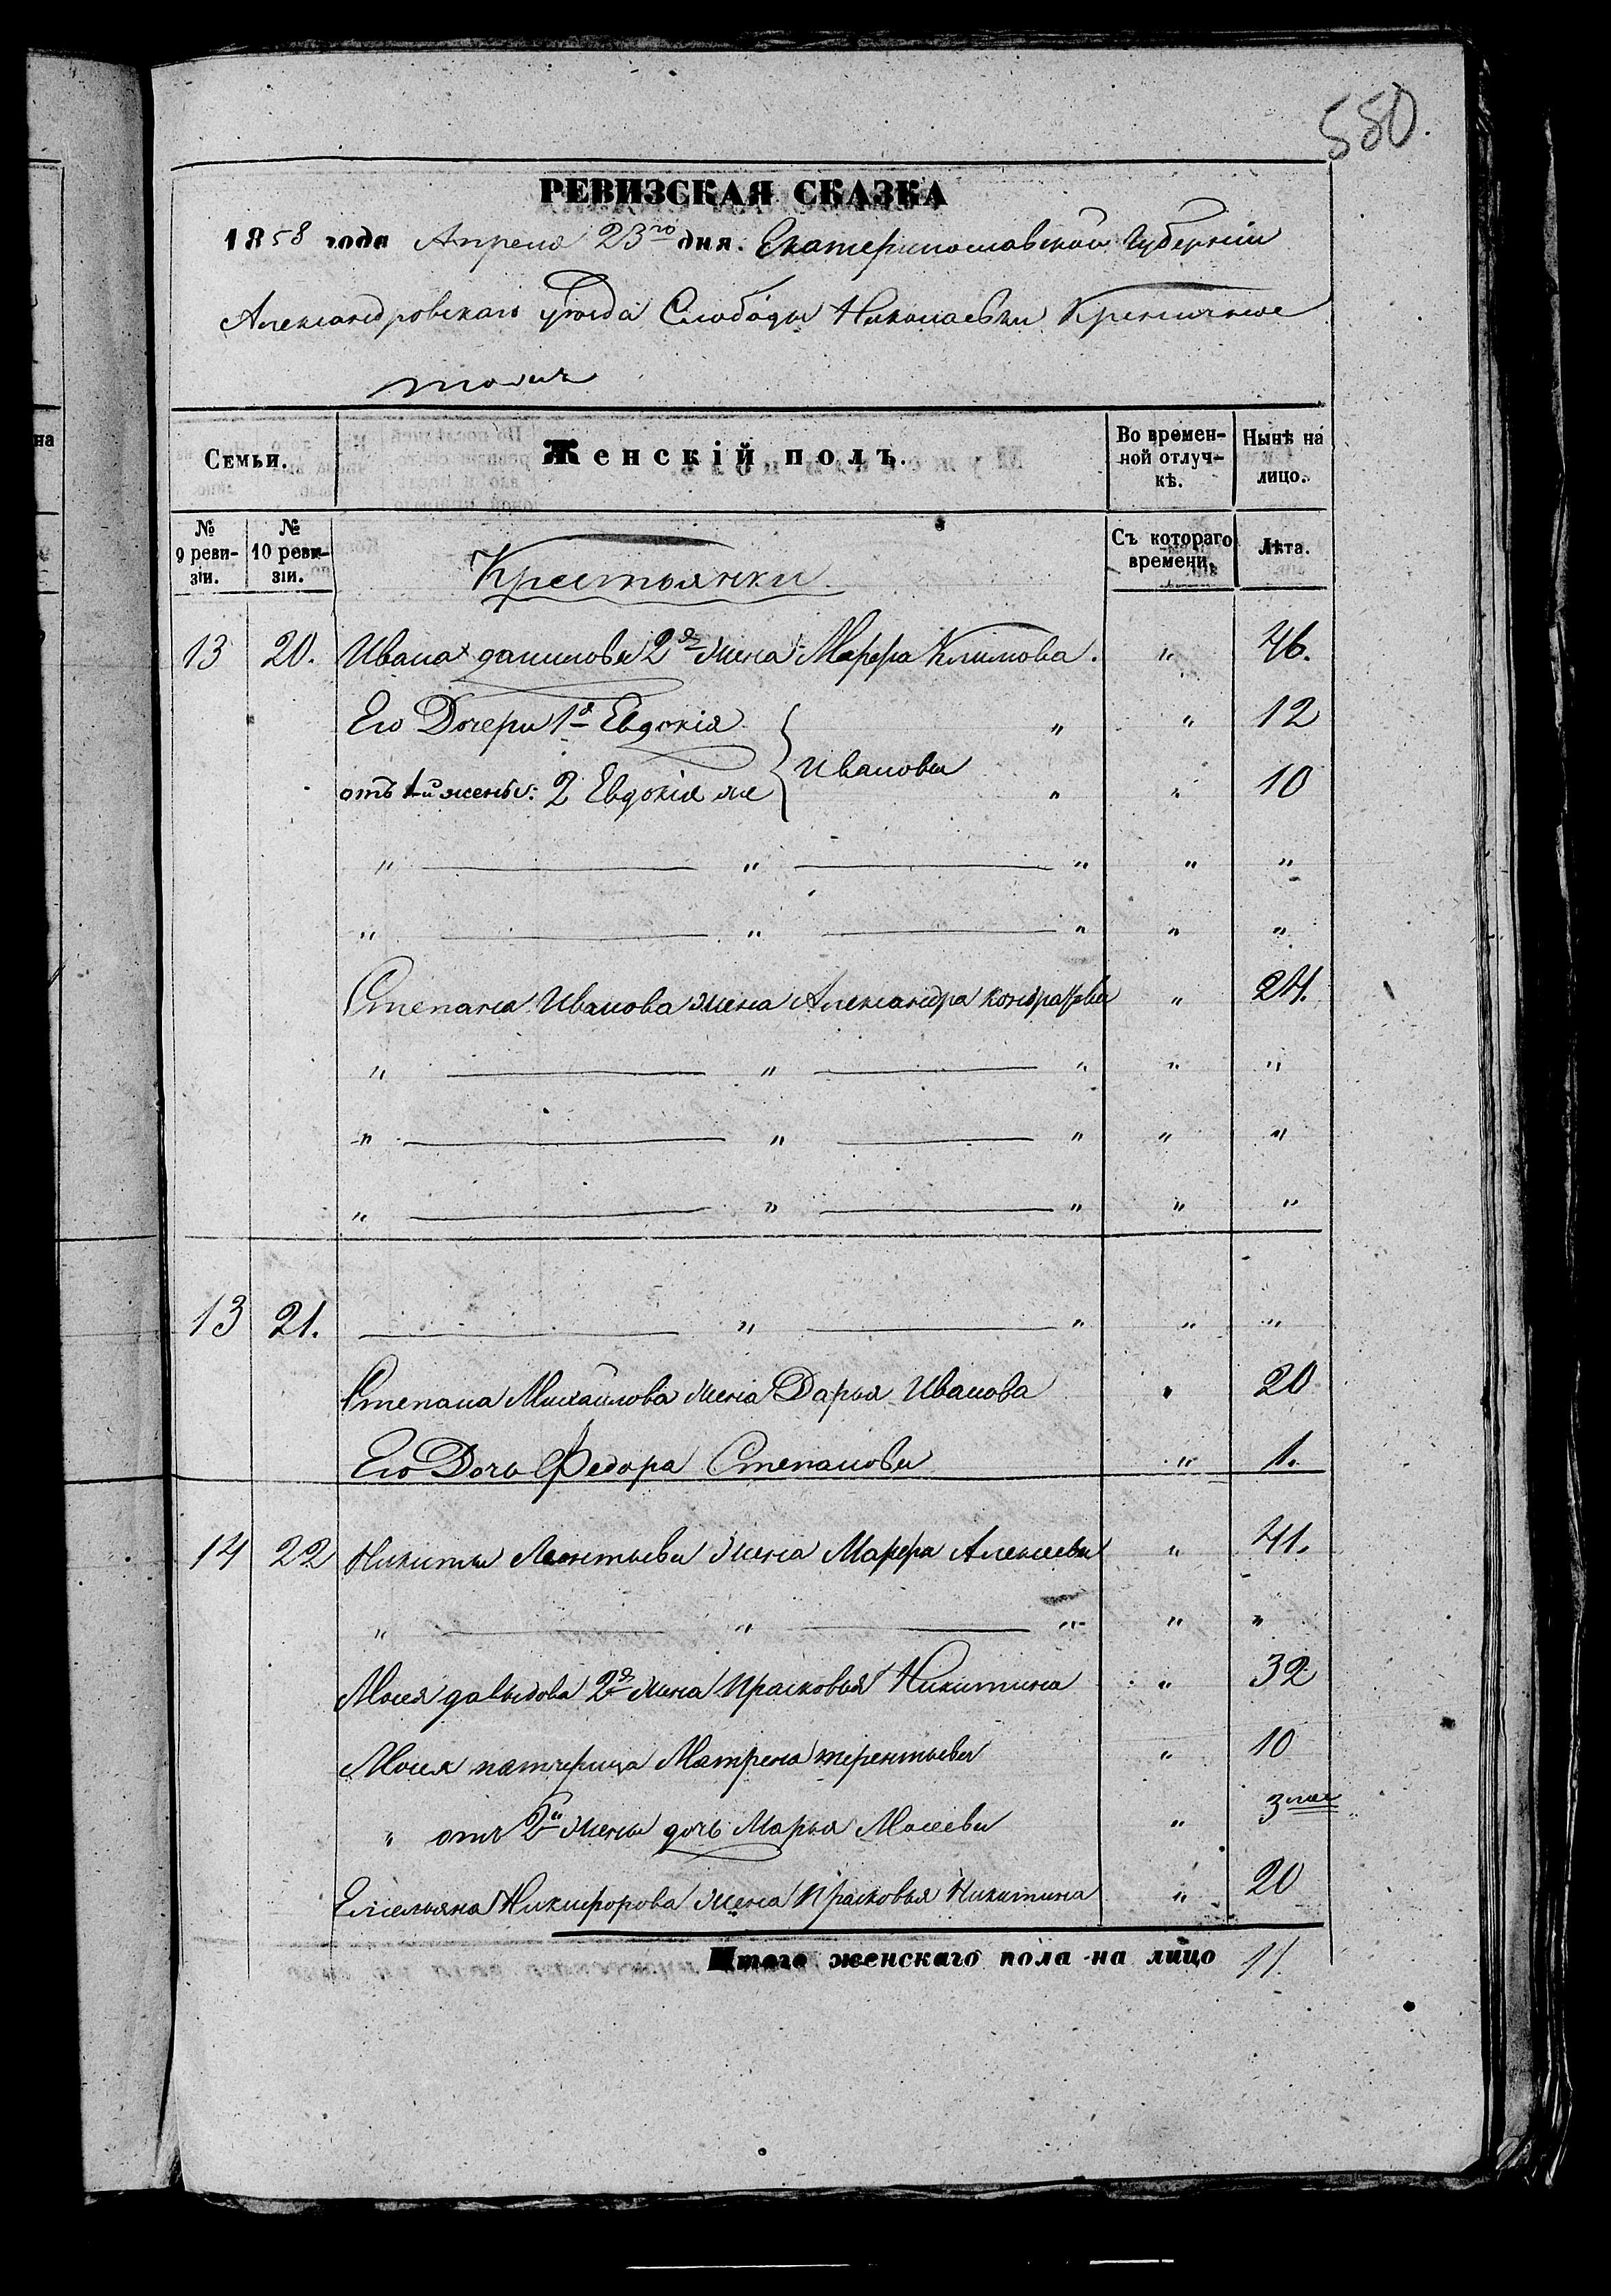 550.
РЕВИЗСКАЯ СКАЗКА
1858 года Апреля 23го дня. Екатеринославской Губерніи
Александровскаго уѣзда Слободы Николаевки Криничное
тожъ
Семьи. Женскій полъ. Во времен- Нынѣ на
ной отлуч- лицо.
кѣ.
№ № Съ котораго Лѣта.
9 реви- 10 реви- времени.
зіи. зіи.
Крестьянки
13 20. Ивана Данилова 2я жена Марфа Климова. " 46.
Его Дочери 1я Евдокія " " 12
Ивановы
отъ 1й жены: 2 Евдокія же " " 10
" " " " "
" " " " "
Степана Иванова жена Александра Кондратьева " 24.
" " " " "
" " " " "
" " " " "
13 21. " " " "
Степана Михайлова жена Дарья Иванова " 20
Его Дочь Федора Степанова " 1.
14 22 Никиты Леонтьева жена Марфа Алексеева " 41.
" " " " "
Мосея Давыдова 2я жена Прасковья Никитина " 32
Мосея патчерица Матрена Терентьева " 10
" отъ 2й жены дочь Марья Мосеева " 3 мес
Емельяна Никифорова жена Прасковья Никитина " 20
Итого женскаго пола на лицо 11.